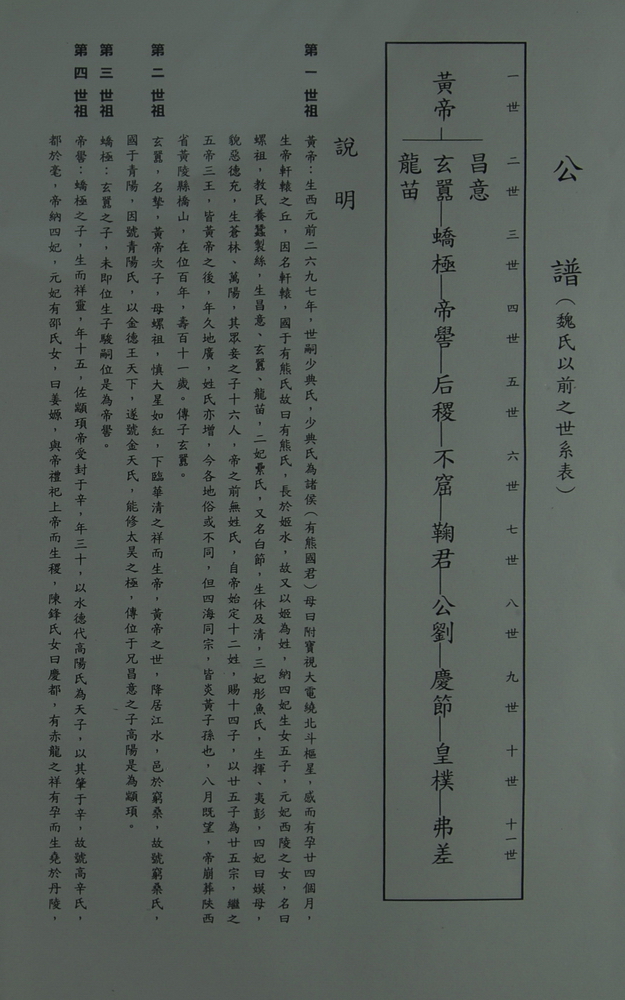 公譜（魏氏以前之世系表）
一世 二世 三世 四世 五世 六世 七世 八世 九世 十世 十一世
昌意
黃帝—玄囂—蟜極—帝嚳—后稷—不窋—鞠君—公劉—慶節—皇樸—弗差
龍苗
說明
第一世祖 黃帝：生西元前二六九七年，世嗣少典氏，少典氏為諸侯（有熊國君）母曰附寶視大電繞北斗樞星，感而有孕廿四個月，
生帝軒轅之丘，因名軒轅，國于有熊氏故曰有熊氏，長於姬水，故又以姬為姓，納四妃生女五子，元妃西陵之女，名曰
螺祖，教民養蠶製絲，生昌意、玄囂、龍苗，二妃纍氏，又名白節，生休及清，三妃彤魚氏，生揮、夷彭，四妃曰嫫母，
貌惡德充，生蒼林、萬陽，其眾妾之子十六人，帝之前無姓氏，自帝始定十二姓，賜十四子，以廿五子為廿五宗，繼之
五帝三王，皆黃帝之後，年久地廣，姓氏亦增，今各地俗或不同，但四海同宗，皆炎黃子孫也，八月既望，帝崩葬陝西
省黃陵縣橋山，在位百年，壽百十一歲。傳子玄囂。
第二世祖 玄囂，名摯，黃帝次子，母螺祖，慎大星如紅，下臨華清之祥而生帝，黃帝之世，降居江水，邑於窮桑，故號窮桑氏，
國于青陽，因號青陽氏，以金德王天下，遂號金天氏，能修太昊之極，傳位于兄昌意之子高陽是為顓頊。
第三世祖 蟜極：玄囂之子，未即位生子駿嗣位是為帝嚳。
第四世祖 帝嚳：蟜極之子，生而祥靈，年十五，佐顓頊帝受封于辛，年三十，以水德代高陽氏為天子，以其肇于辛，故號高辛氏，
都於亳，帝納四妃，元妃有邰氏女，曰姜嫄，與帝禮祀上帝而生稷，陳鋒氏女曰慶都，有赤龍之祥有孕而生堯於丹陵，